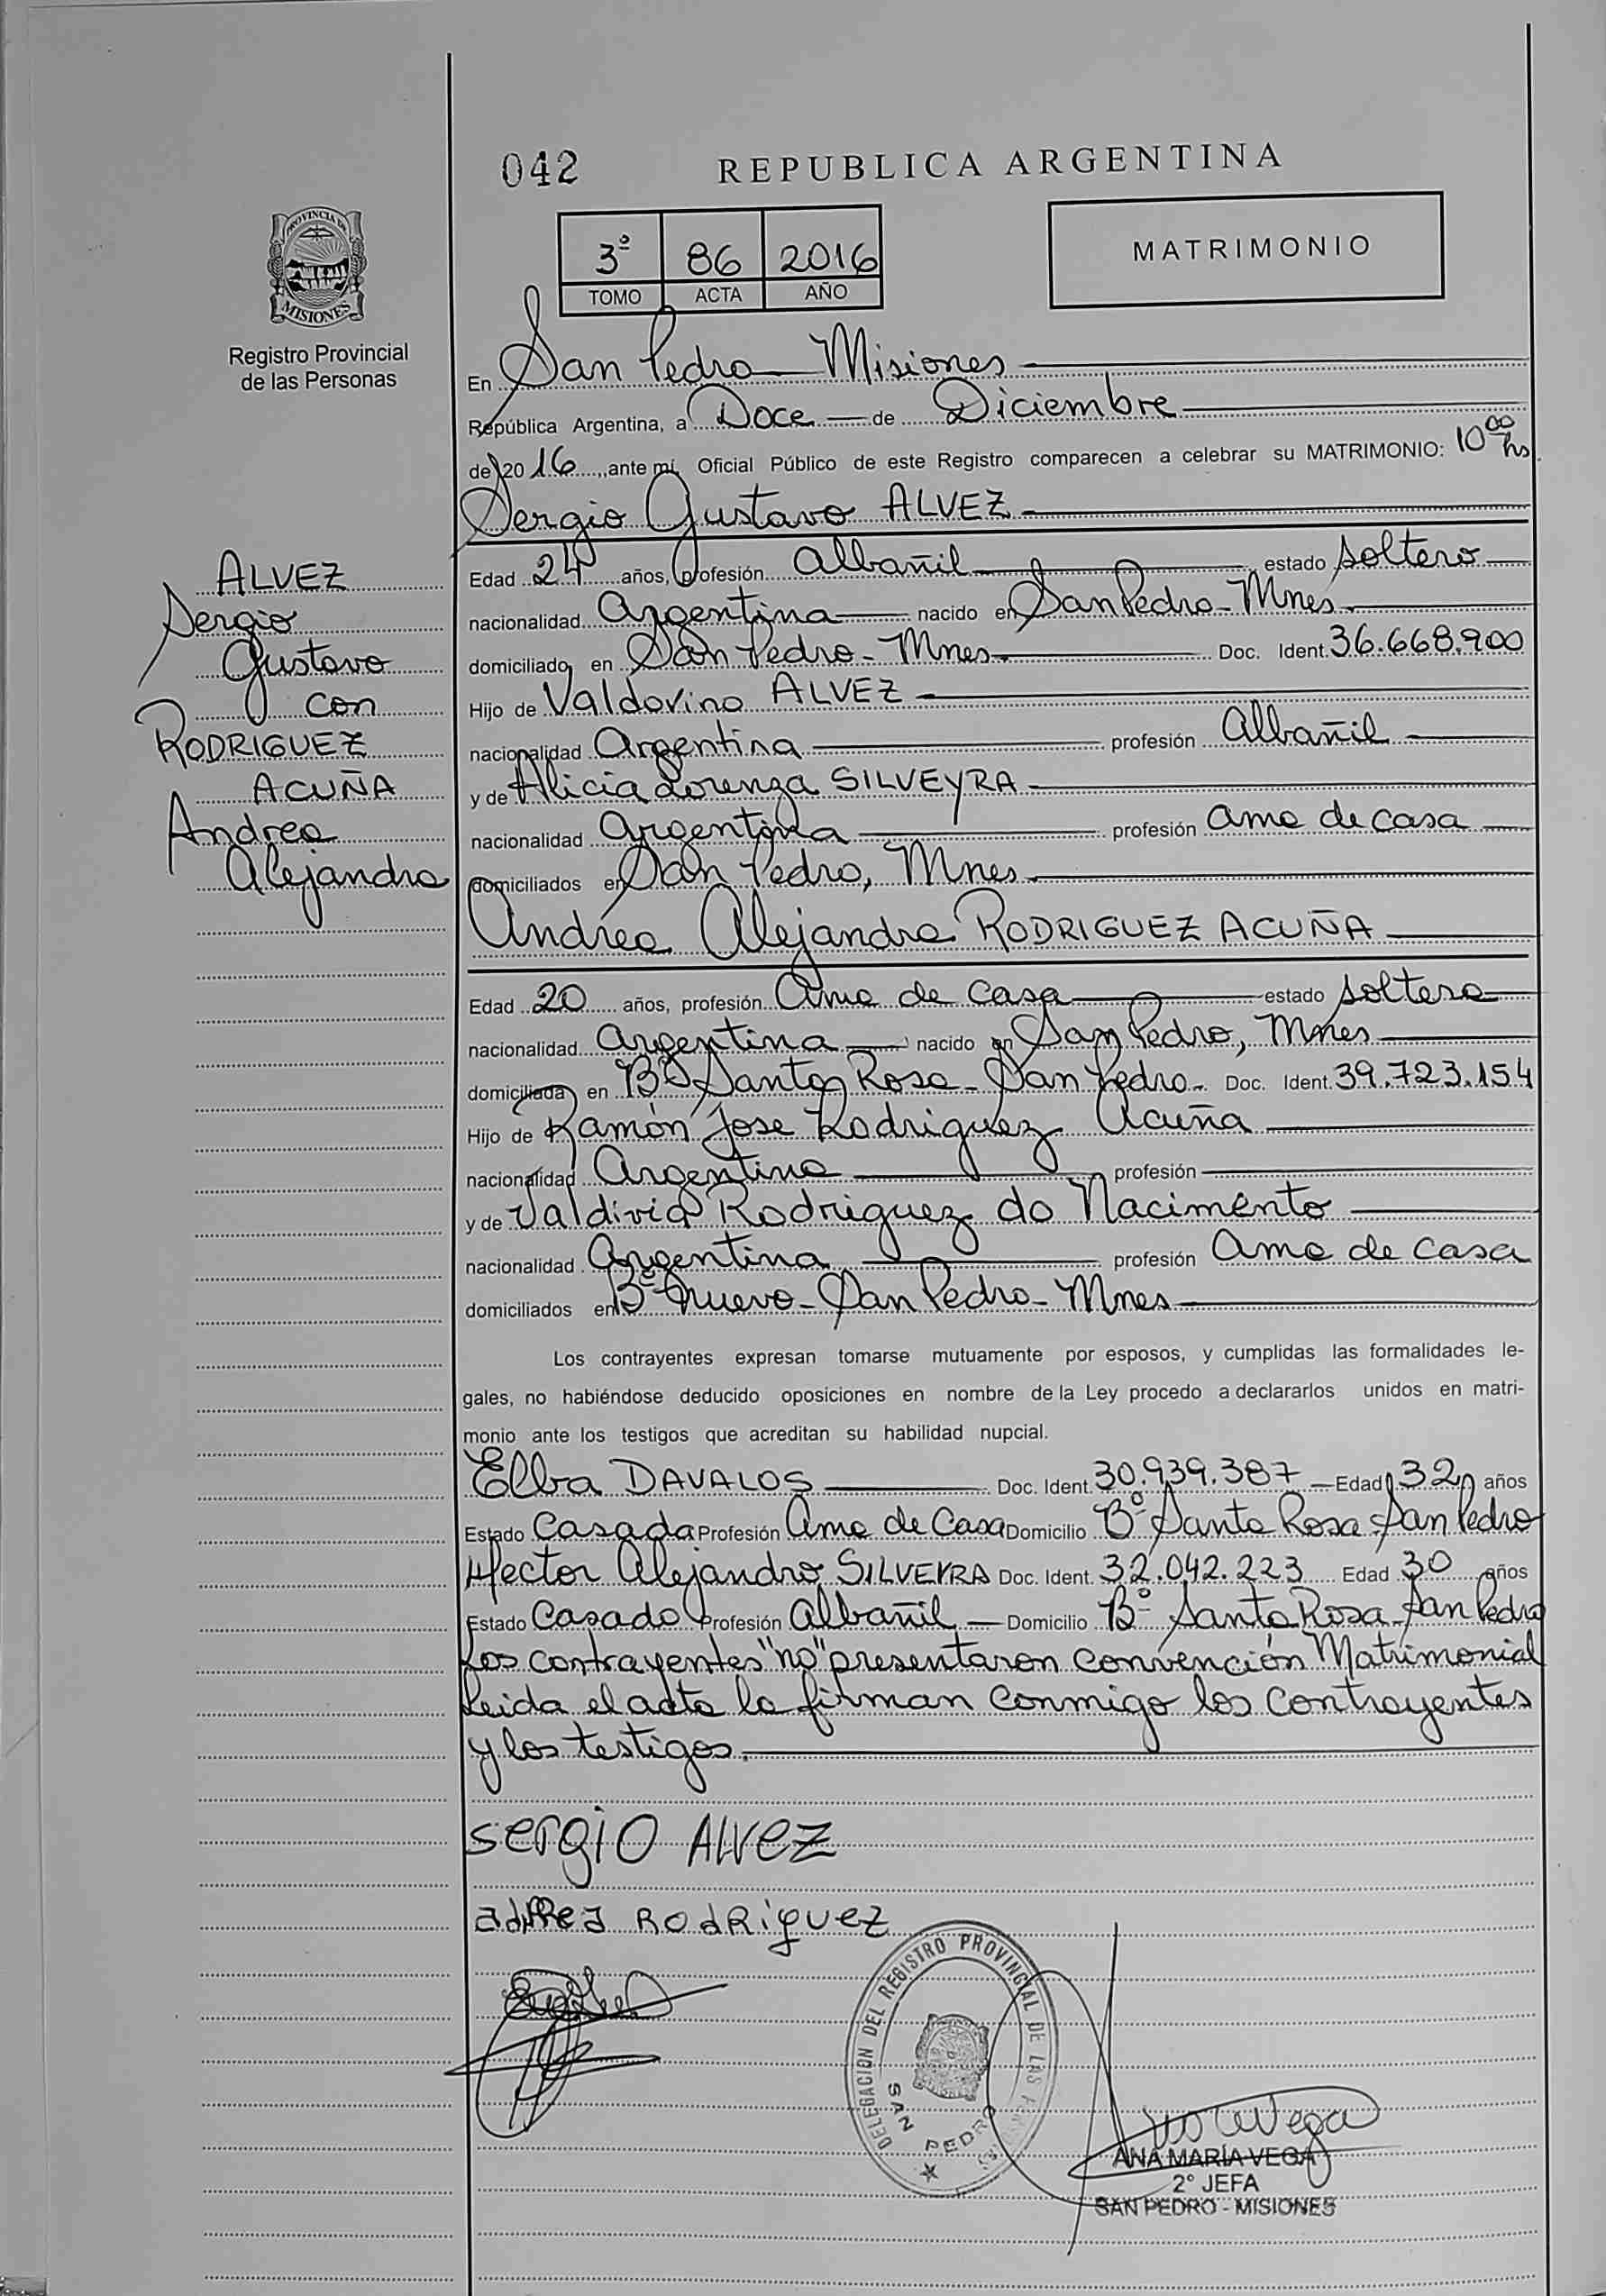 042 REPUBLICA ARGENTINA
3º 86 2016
TOMO ACTA AÑO
MATRIMONIO
PROVINCIA DE
MISIONES
Registro Provincial
de las Personas
En San Pedro Misiones
República Argentina, a Doce de Diciembre
de 2016, ante mí, Oficial Público de este Registro comparecen a celebrar su MATRIMONIO: 10 00 hs.
Sergio Gustavo ALVEZ
ALVEZ
Sergio
Gustavo
con
RODRIGUEZ
ACUÑA
Andrea
Alejandra
Edad 24 años, profesión Albañil estado soltero
nacionalidad Argentina nacido en San Pedro - Mnes
domiciliado en San Pedro - Mnes. Doc. Ident. 36.668.900
Hijo de Valdovino ALVEZ
nacionalidad Argentina profesión Albañil
y de Alicia Lorenza SILVEYRA
nacionalidad Argentina profesión ama de casa
domiciliados en San Pedro, Mnes
Andrea Alejandra RODRIGUEZ ACUÑA
Edad 20 años, profesión Ama de Casa estado soltera
nacionalidad Argentina nacido en San Pedro, Mnes
domiciliada en Bº Santa Rosa - San Pedro - Doc. Ident. 39.723.154
Hijo de Ramón Jose Rodriguez Acuña
nacionalidad Argentina profesión
y de Valdivia Rodriguez do Nacimento
nacionalidad Argentina profesión ama de casa
domiciliados en Bº Nuevo - San Pedro - Mnes
Los contrayentes expresan tomarse mutuamente por esposos, y cumplidas las formalidades le-
gales, no habiéndose deducido oposiciones en nombre de la Ley procedo a declararlos unidos en matri-
monio ante los testigos que acreditan su habilidad nupcial.
Elba DAVALOS Doc. Ident. 30.939.387 Edad 32 años
Estado Casada Profesión Ama de Casa Domicilio Bº Santa Rosa San Pedro
Hector Alejandro SILVEYRA Doc. Ident. 32.042.223 Edad 30 años
Estado Casado Profesión Albañil Domicilio Bº Santa Rosa San Pedro
Los contrayentes "no" presentaron convención Matrimonial
Leida el acta la firman conmigo los contrayentes
y los testigos.
sergio Alvez
RodRiguez
DELEGACION DEL REGISTRO PROVINCIAL DE LAS
SAN PEDRO
ANA MARÍA VEGA
2° JEFA
SAN PEDRO - MISIONES